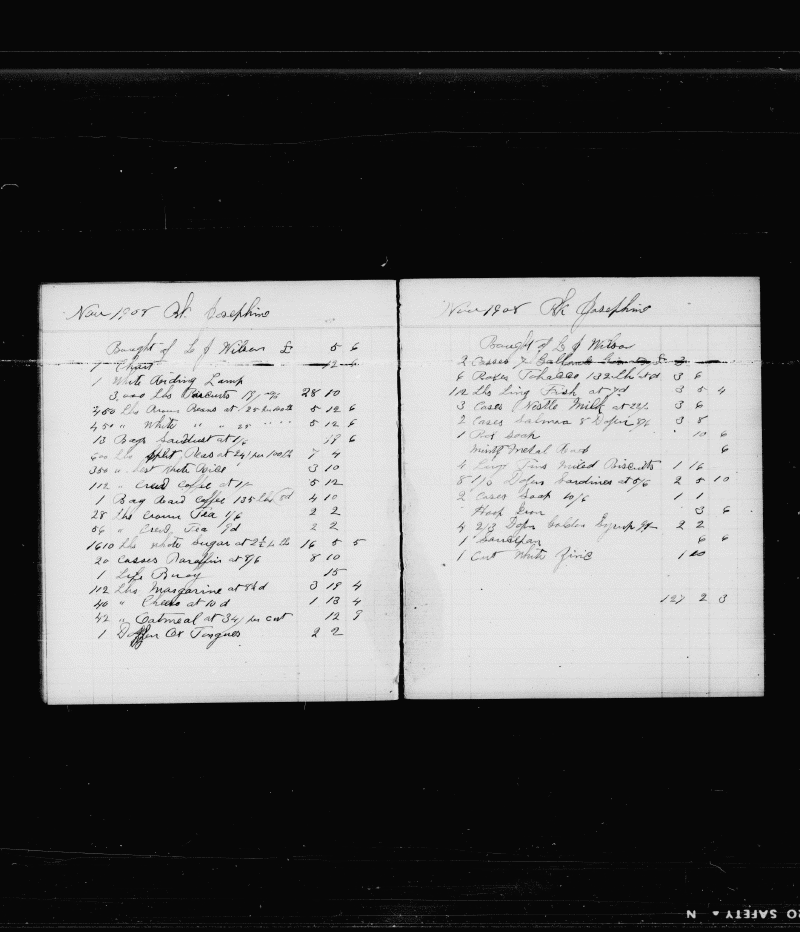 Nov 1908 Bk. Josephine
Bought of L J Wilson £ 5 6
1 Chart 12 6
1 White Riding Lamp
3,000 lbs Biscuits 28 10
450 lbs Brown Beans at 5 12 6
450 " White " " 28 " " " 5 12 6
13 Bags Sawdust at 1/6 19 6
600 lbs Split Peas at 24/ per 100 lb 7 4
350 " best White Rice 3 10
112 " Crew Coffee at 1/- 5 12
1 Bag Coffee 135 lbs 8d 4 10
28 lbs Tea 1/6 2 2
56 " Crew Tea 9d 2 2
1610 lbs White Sugar at 2½ lb 16 5 5
20 Casses Paraffin at 8/6 8 10
1 Life Buoy 15
112 Lbs Margarine at 8½d 3 19 4
40 " Cheese at 10d 1 13 4
42 " Oatmeal at 34/ per cwt 12 9
1 Ox Tongues 2 2
Nov 1908 Bk Josephine
Bought of L J Wilson
2 Casses 3
6 Boxes Tobacco 132 Lbs 3 6
112 Lbs Ling Fish at 7d 3 5 4
3 Cases Nestle Milk at 22/- 3 6
2 Cases Salmon 8 Dozen 3 8
1 Box Soap 10 6
Metal 6
4 Large Tins Mixed Biscuits 1 16
8 1/2 Dozen Sardines at 5/6 2 5 10
2 Cases Soap 10/6 1 1
Hoop Iron 3 6
4 2/3 Dozen Golden Syrup 9/- 2 2
1 Saucepan 6 6
1 Cwt White Zinc 1 10
127 2 3
RO SAFETY ▲ N